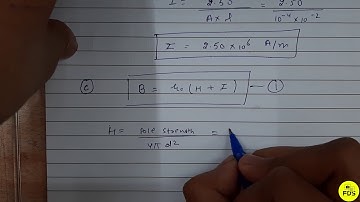 I = 2.50 = 2.50
A x l 10⁻⁴ x 10⁻²
I = 2.50 x 10⁶ A/m
(c) B = μ₀ (H + I) — (1)
H = Pole Strength =
4π d²
FDS